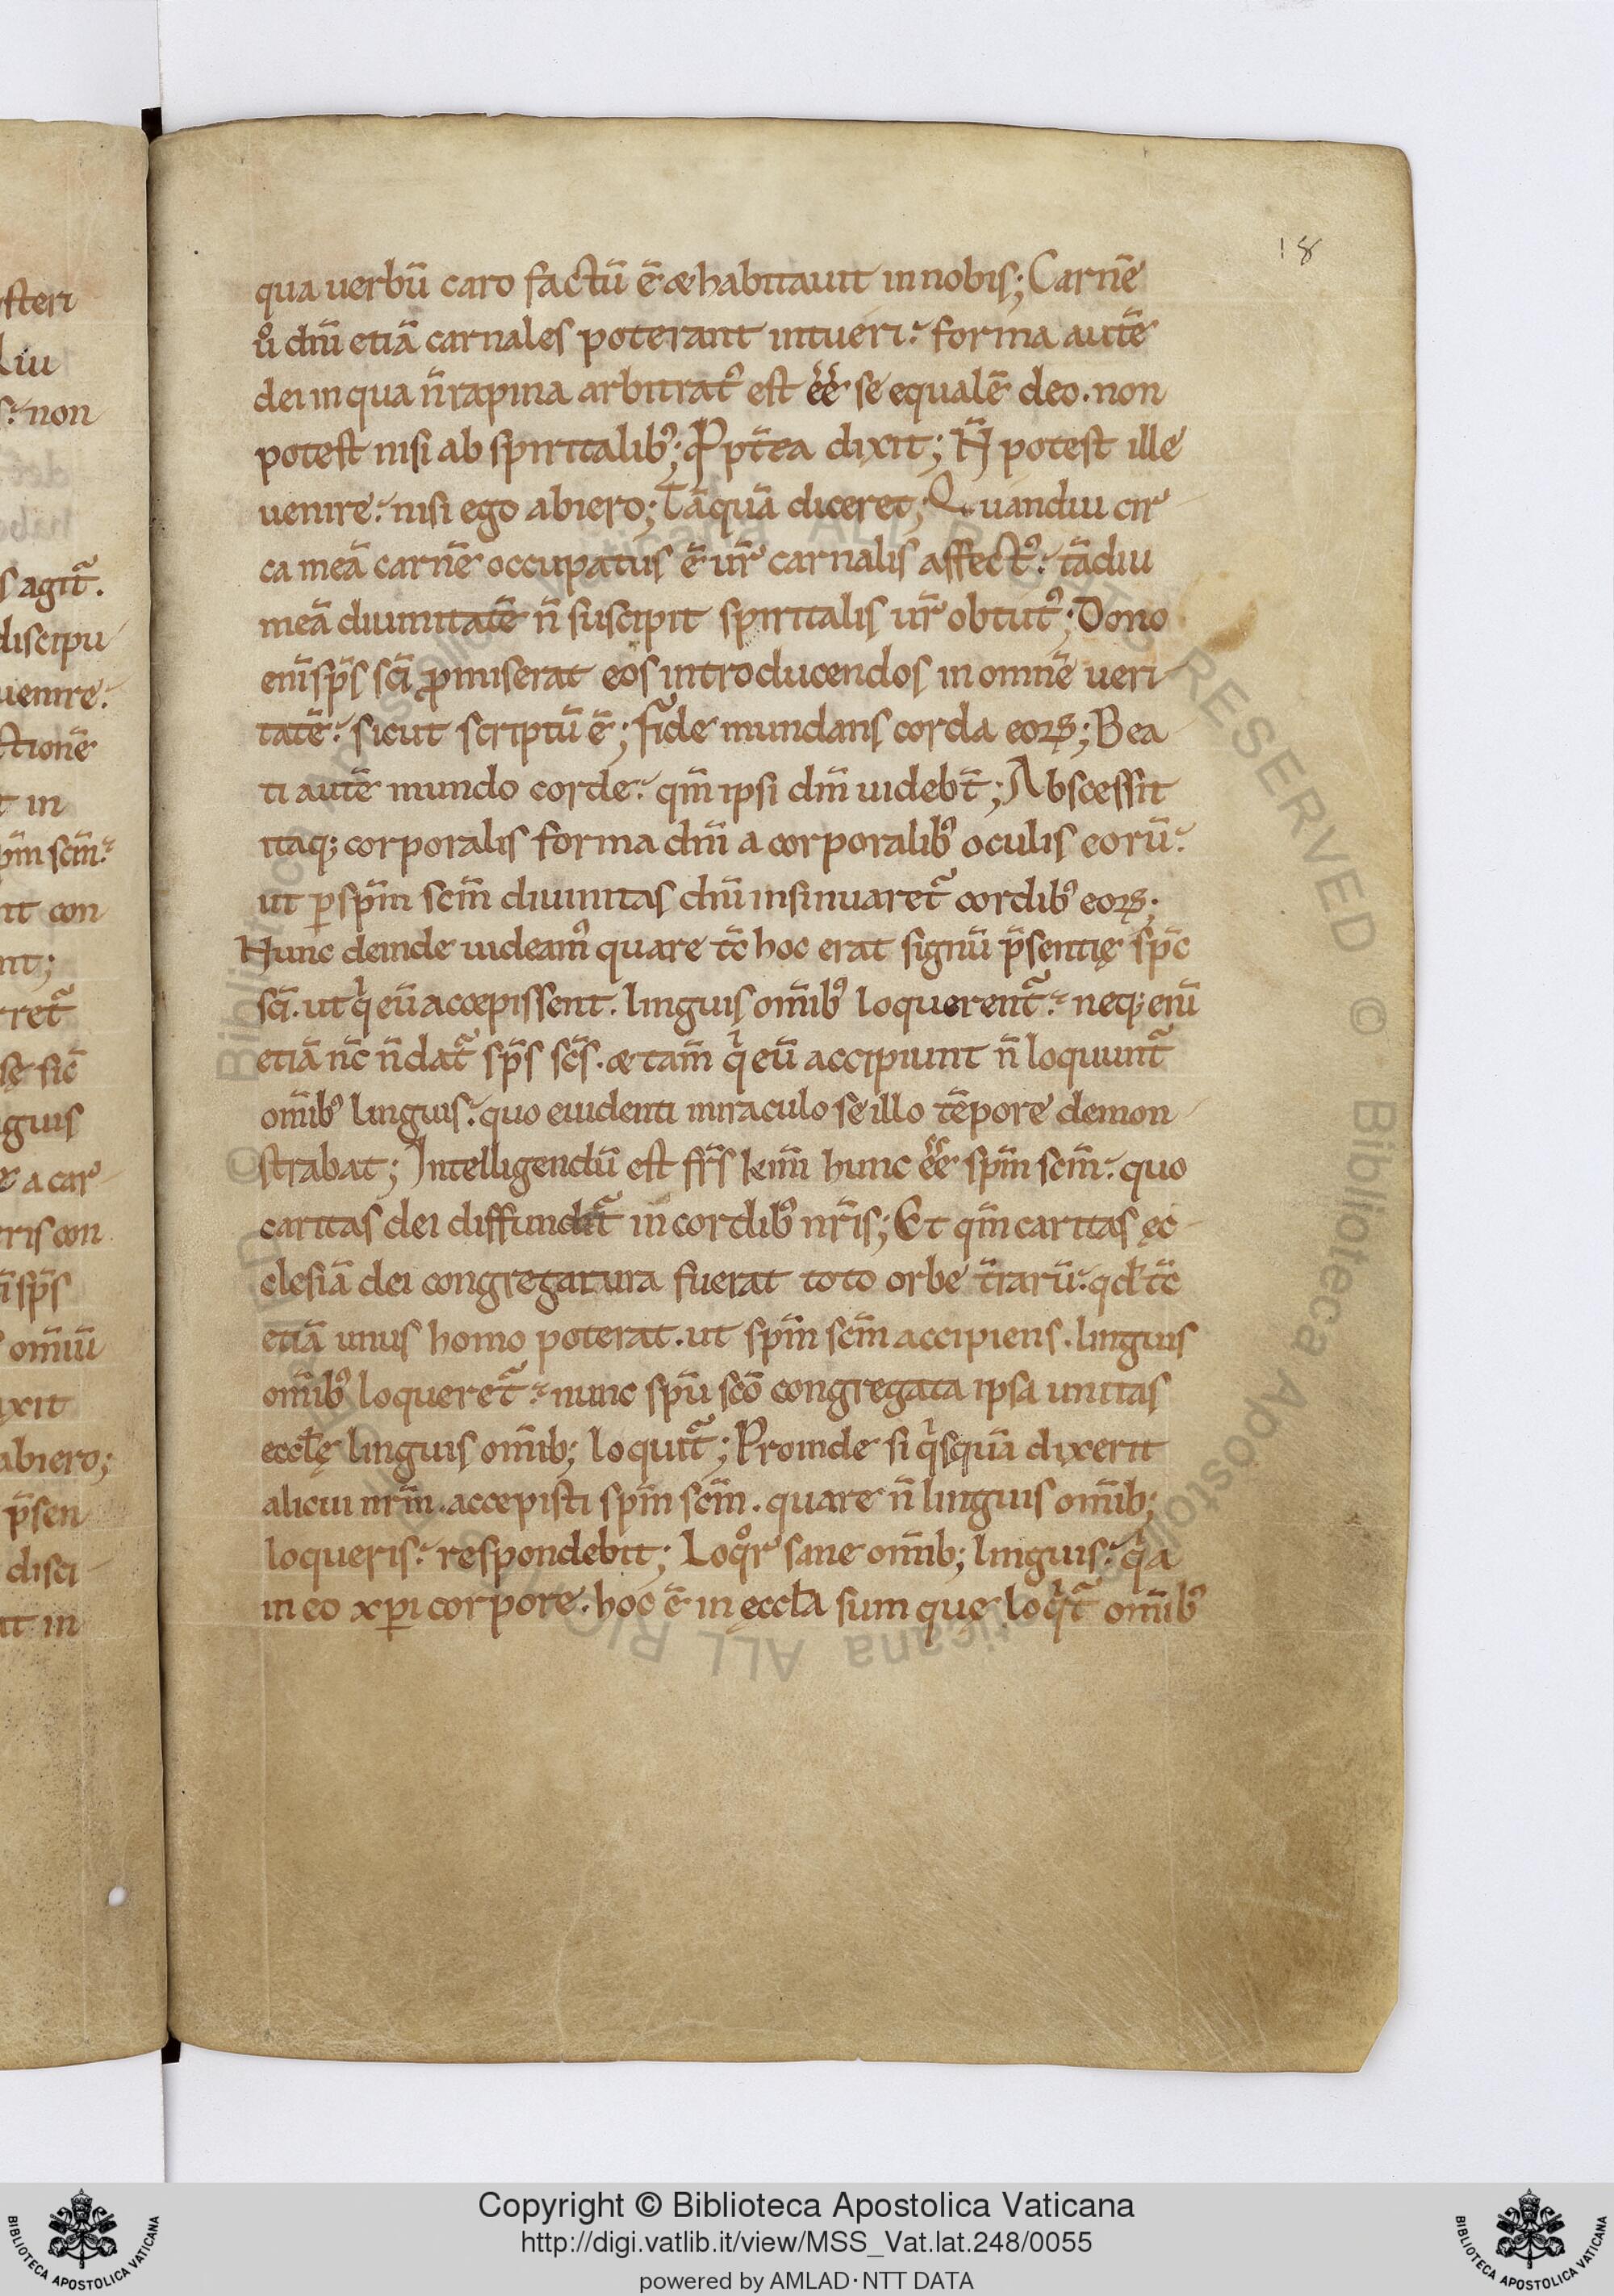 18
qua uerbũ caro factũ ẽ & habitauit in nobis; Carnẽ
ů dñi etiã carnales poterant intueri. forma autẽ
dei in qua ñ rapina arbitratꝰ est ẽẽ se equalẽ deo. non
potest nisi ab spiritalibꝰ; Ppt̃ea dixit; Ñ potest ille
uenire. nisi ego abiero; Tãquã diceret; Quandiu cir
ca meã carnẽ occupatus ẽ ur̃ carnalis affectꝰ. tãdiu
meã diuinitatẽ ñ suscipit spiritalis ur̃ obtutꝰ; Dono
eni̅ sp̃s sc̃i ꝓmiserat eos introducendos in omnẽ ueri
tatẽ. sicut scriptũ ẽ; fide mundans corda eoꝝ; Bea
ti autẽ mundo corde. qm̃ ipsi dm̃ uidebt̃; Abscessit
itaq; corporalis forma dñi a corporalibꝰ oculis eorũ.
ut ꝑ spm̃ scm̃ diuinitas dñi insinuaret᷑ cordibꝰ eoꝝ;
Nunc deinde uideamꝰ quare tc̃ hoc erat signũ p̃sentię spc̃
sc̃i. ut qͥ eũ accepissent. linguis om̃ibꝰ loquerent᷑. neq; eni̅
etiã nc̃ ñ dat᷑ sp̃s sc̃s. & tam̃ qͥ eũ accipiunt ñ loquunt᷑
om̃ibꝰ linguis. quo euidenti miraculo se illo tẽpore demon
strabat; Intelligendũ est fr̃s km̃i hunc ẽẽ spm̃ scm̃. quo
caritas dei diffundit᷑ in cordibꝰ nr̃is; Et qm̃ caritas ęc
clesiã dei congregatura fuerat toto orbe t̃rarũ. qd tc̃
etiã unus homo poterat. ut spm̃ scm̃ accipiens. linguis
om̃ibꝰ loqueret᷑. nunc spũ scõ congregata ipsa unitas
eccłę linguis om̃ib; loquit᷑; Proinde si qͥsquã dixerit
alicui nrm̃. accepisti spm̃ scm̃. quare ñ linguis om̃ib;
loqueris. respondebit; Loqͦr sane om̃ib; linguis. qͥa
in eo xp̅i corpore. hoc ẽ in ęccła sum que loqͥt᷑ om̃ibꝰ
steri
s agit᷑.
discipu
uenire.
ctionẽ
t in
pm̃ scm̃.
it con
ret᷑
guis
a car
ris con
om̃iũ
ixit
abiero;
p̃sen
disci
it in
© Biblioteca Apostolica Vaticana ALL RIGHTS RESERVED
© Biblioteca Apostolica Vaticana ALL RIGHTS RESERVED
Copyright © Biblioteca Apostolica Vaticana
http://digi.vatlib.it/view/MSS_Vat.lat.248/0055
powered by AMLAD·NTT DATA
BIBLIOTECA APOSTOLICA VATICANA
BIBLIOTECA APOSTOLICA VATICANA